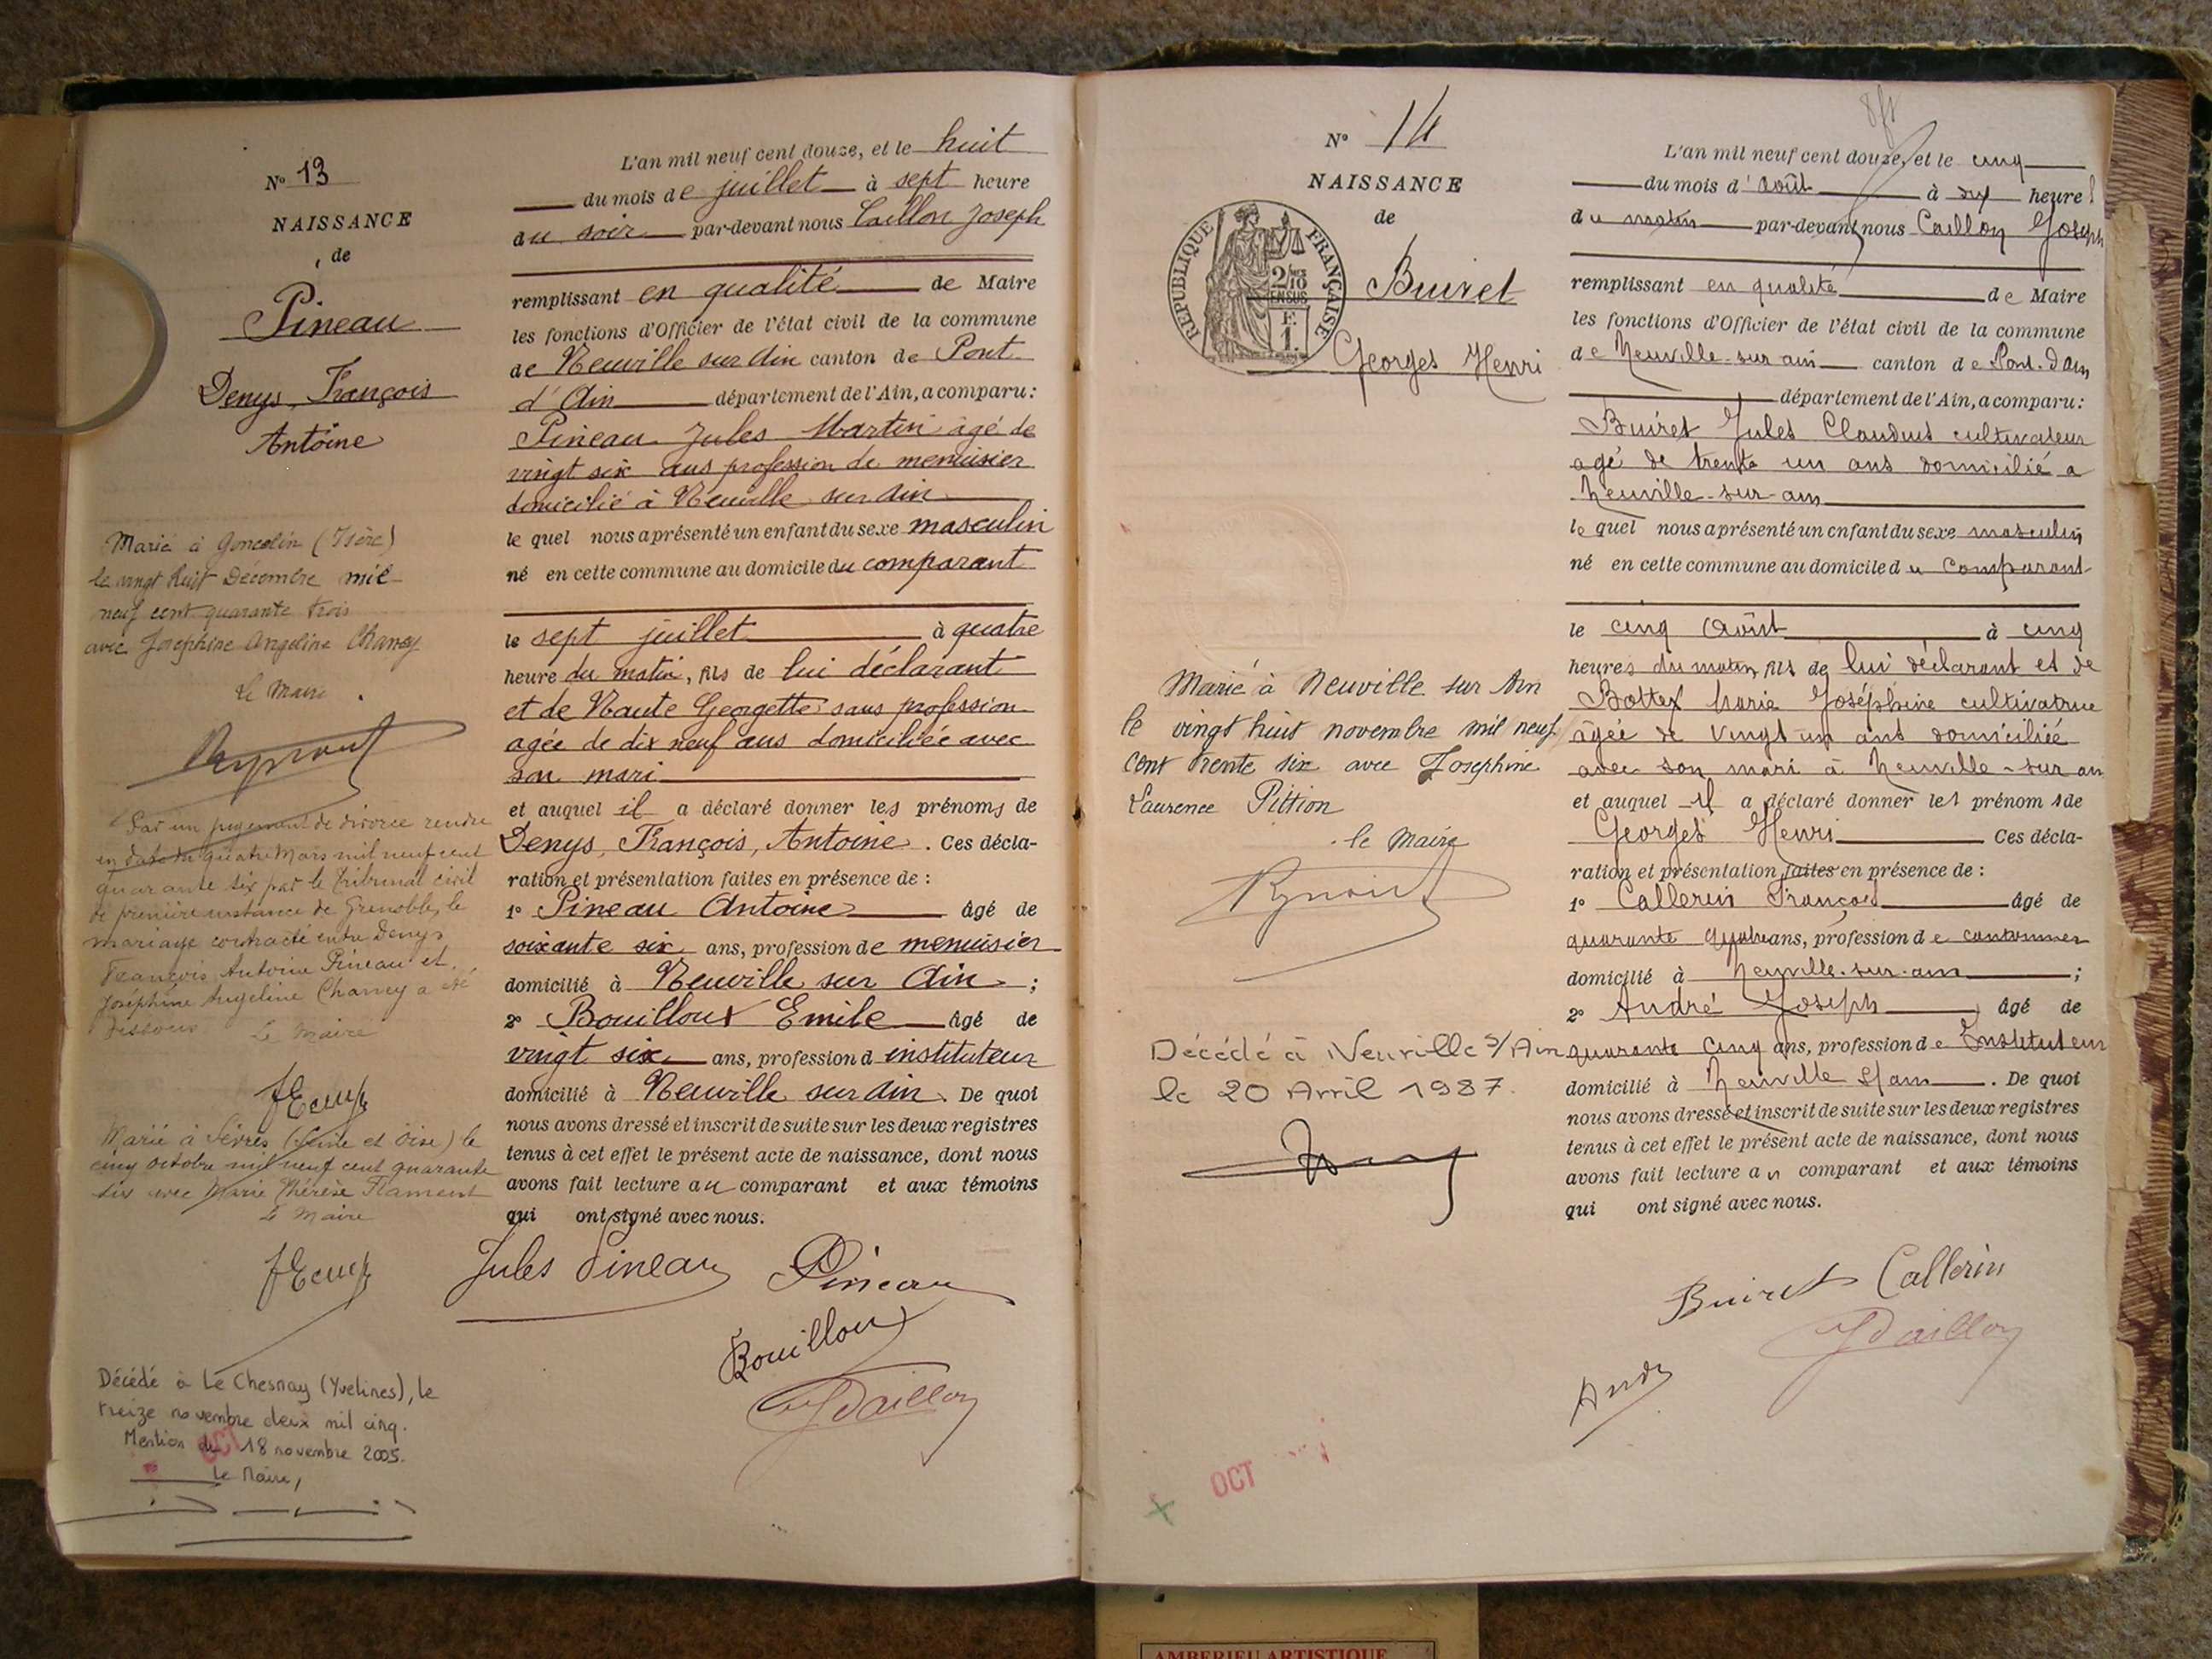 N° 13
NAISSANCE
de
Pineau
Denys, François
Antoine
Marié à Goncelin (Isère)
le vingt huit Décembre mil
neuf cent quarante trois
avec Josephine Angeline Charvey
Le Maire
Par un jugement de divorce rendu
en date du quatre Mars mil neuf cent
quarante six par le tribunal civil
de première instance de Grenoble, le
mariage contracté entre Denys
François Antoine Pineau et
Joséphine Angeline Charvey a été
dissous. Le Maire
Marié à Sèvres (Seine et Oise) le
cinq octobre mil neuf cent quarante
six avec Marie Thérèse Flament
Le Maire
Décédé à Le Chesnay (Yvelines), le
treize novembre deux mil cinq.
Mention du 18 novembre 2005.
Le Maire,
OCT
L'an mil neuf cent douze, et le huit
du mois de juillet à sept heure
du soir par-devant nous Caillon Joseph
remplissant en qualité de Maire
les fonctions d'Officier de l'état civil de la commune
de Neuville sur Ain canton de Pont
d'Ain département de l'Ain, a comparu :
Pineau Jules Martin âgé de
vingt six ans profession de menuisier
domicilié à Neuville sur Ain
le quel nous a présenté un enfant du sexe masculin
né en cette commune au domicile du comparant
le sept juillet à quatre
heure du matin, fils de lui déclarant
et de Naute Georgette sans profession
agée de dix neuf ans domiciliée avec
son mari
et auquel il a déclaré donner les prénoms de
Denys, François, Antoine. Ces décla-
ration et présentation faites en présence de :
1° Pineau Antoine âgé de
soixante six ans, profession de menuisier
domicilié à Neuville sur Ain ;
2° Bouilloux Emile âgé de
vingt six ans, profession d instituteur
domicilié à Neuville sur Ain. De quoi
nous avons dressé et inscrit de suite sur les deux registres
tenus à cet effet le présent acte de naissance, dont nous
avons fait lecture au comparant et aux témoins
qui ont signé avec nous.
Jules Pineau Pineau
Bouilloux
JCaillon
N° 14
NAISSANCE
de
RÉPUBLIQUE FRANÇAISE
2/10
EN SUS
F.
1.
Buiret
Georges Henri
Marié à Neuville sur Ain
le vingt huit novembre mil neuf
cent trente six avec Josephine
Laurence Pittion
le Maire
Décédé à Neuville s/Ain
le 20 Avril 1987.
OCT
L'an mil neuf cent douze, et le cinq
du mois d'août à dix heures
du matin par-devant nous Caillon Joseph
remplissant en qualité de Maire
les fonctions d'Officier de l'état civil de la commune
de Neuville-sur-ain canton de Pont-d'ain
département de l'Ain, a comparu :
Buiret Jules Claudius cultivateur
agé de trente un ans domicilié a
Neuville-sur-ain
le quel nous a présenté un enfant du sexe masculin
né en cette commune au domicile du comparant
le cinq Août à cinq
heures du matin, fils de lui déclarant et de
Bottex Marie Joséphine cultivatrice
âgée de vingt-un ans domiciliée
avec son mari à Neuville-sur ain
et auquel il a déclaré donner les prénoms de
Georges Henri Ces décla-
ration et présentation faites en présence de :
1° Callerin François âgé de
quarante quatre ans, profession de cantonnier
domicilié à Neuville-sur-ain ;
2° André Joseph âgé de
quarante cinq ans, profession de Instituteur
domicilié à Neuville s/ain. De quoi
nous avons dressé et inscrit de suite sur les deux registres
tenus à cet effet le présent acte de naissance, dont nous
avons fait lecture au comparant et aux témoins
qui ont signé avec nous.
Buiret Callerin
JCaillon
André
AMBERIEU ARTISTIQUE